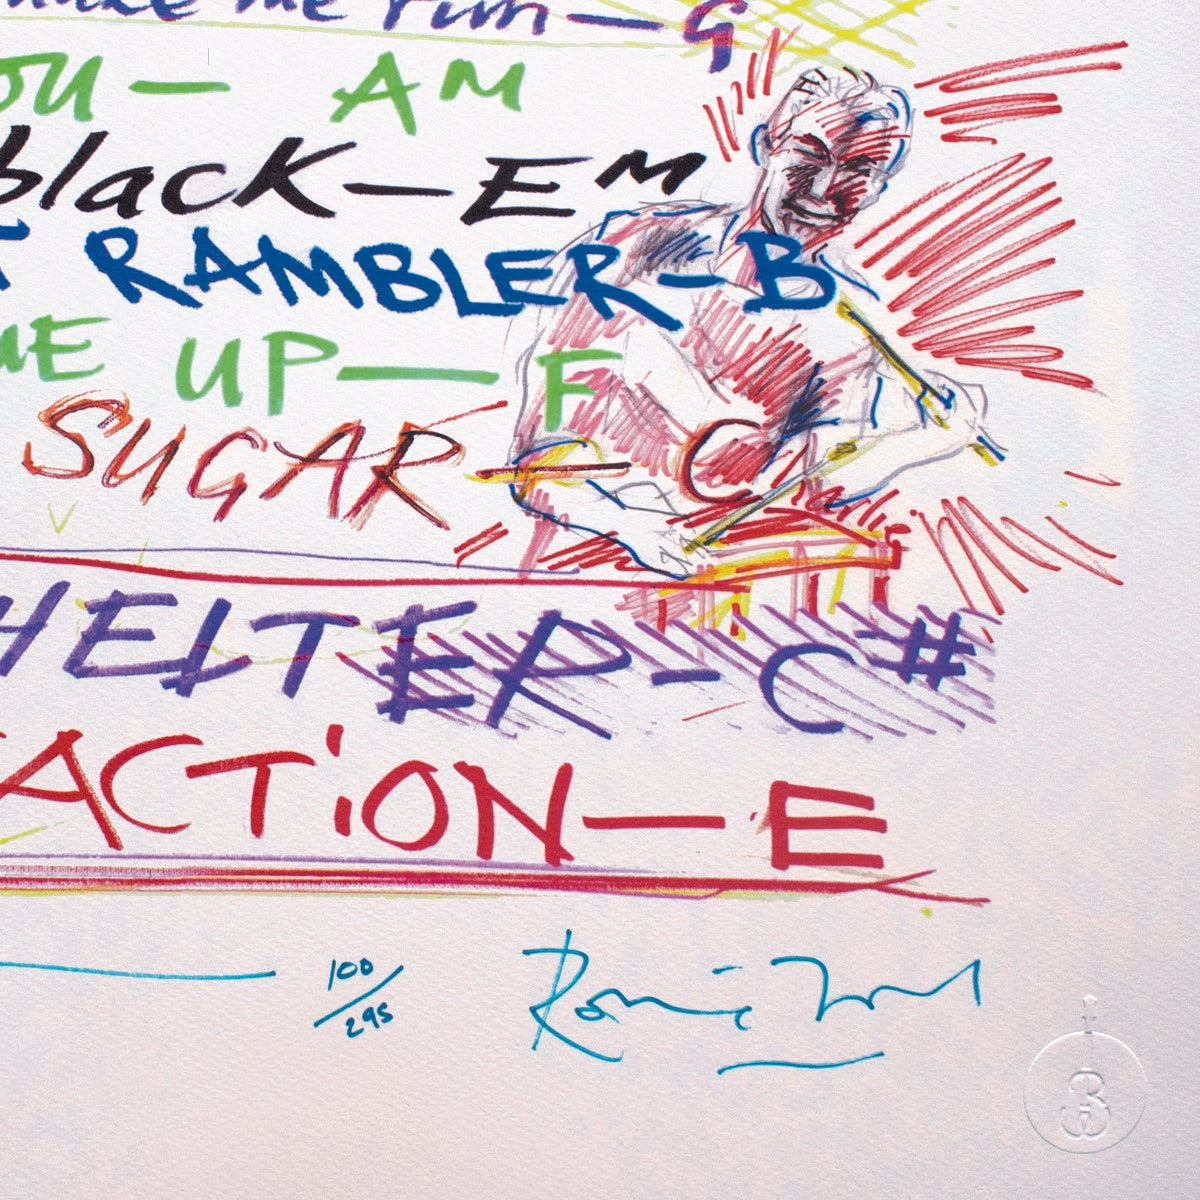 make me run — G
OU — AM
black — EM
T RAMBLER — B
ME UP — F
SUGAR — C
Charlie
HELTER — C#
ACTION — E
100/295 Ronnie Wood
B